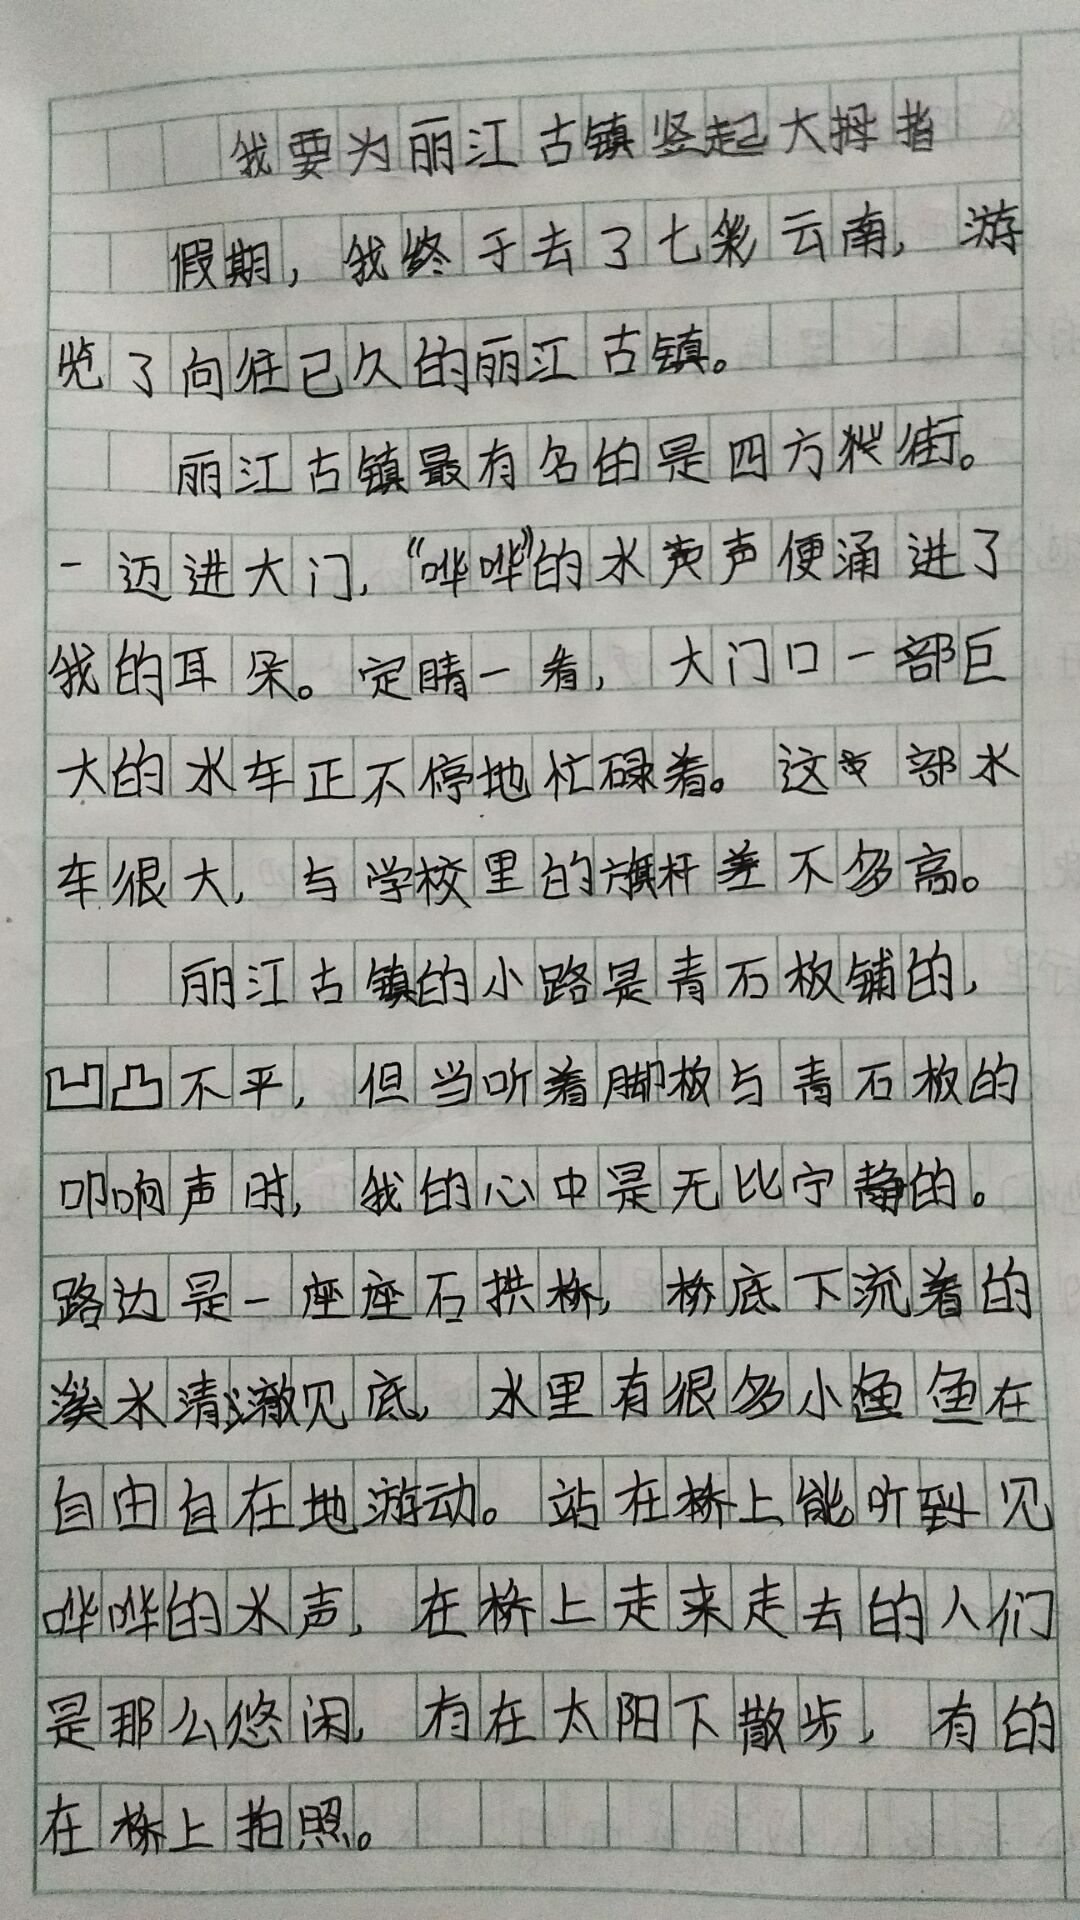 我要为丽江古镇竖起大拇指
假期，我终于去了七彩云南，游
览了向往已久的丽江古镇。
丽江古镇最有名的是四方街。
一迈进大门，“哗哗”的水声便涌进了
我的耳朵。定睛一看，大门口一部巨
大的水车正不停地忙碌着。这部水
车很大，与学校里的旗杆差不多高。
丽江古镇的小路是青石板铺的，
凹凸不平，但当听着脚板与青石板的
叩响声时，我的心中是无比宁静的。
路边是一座座石拱桥，桥底下流着的
溪水清澈见底，水里有很多小鱼鱼在
自由自在地游动。站在桥上能听到见
哗哗的水声，在桥上走来走去的人们
是那么悠闲，有在太阳下散步，有的
在桥上拍照。